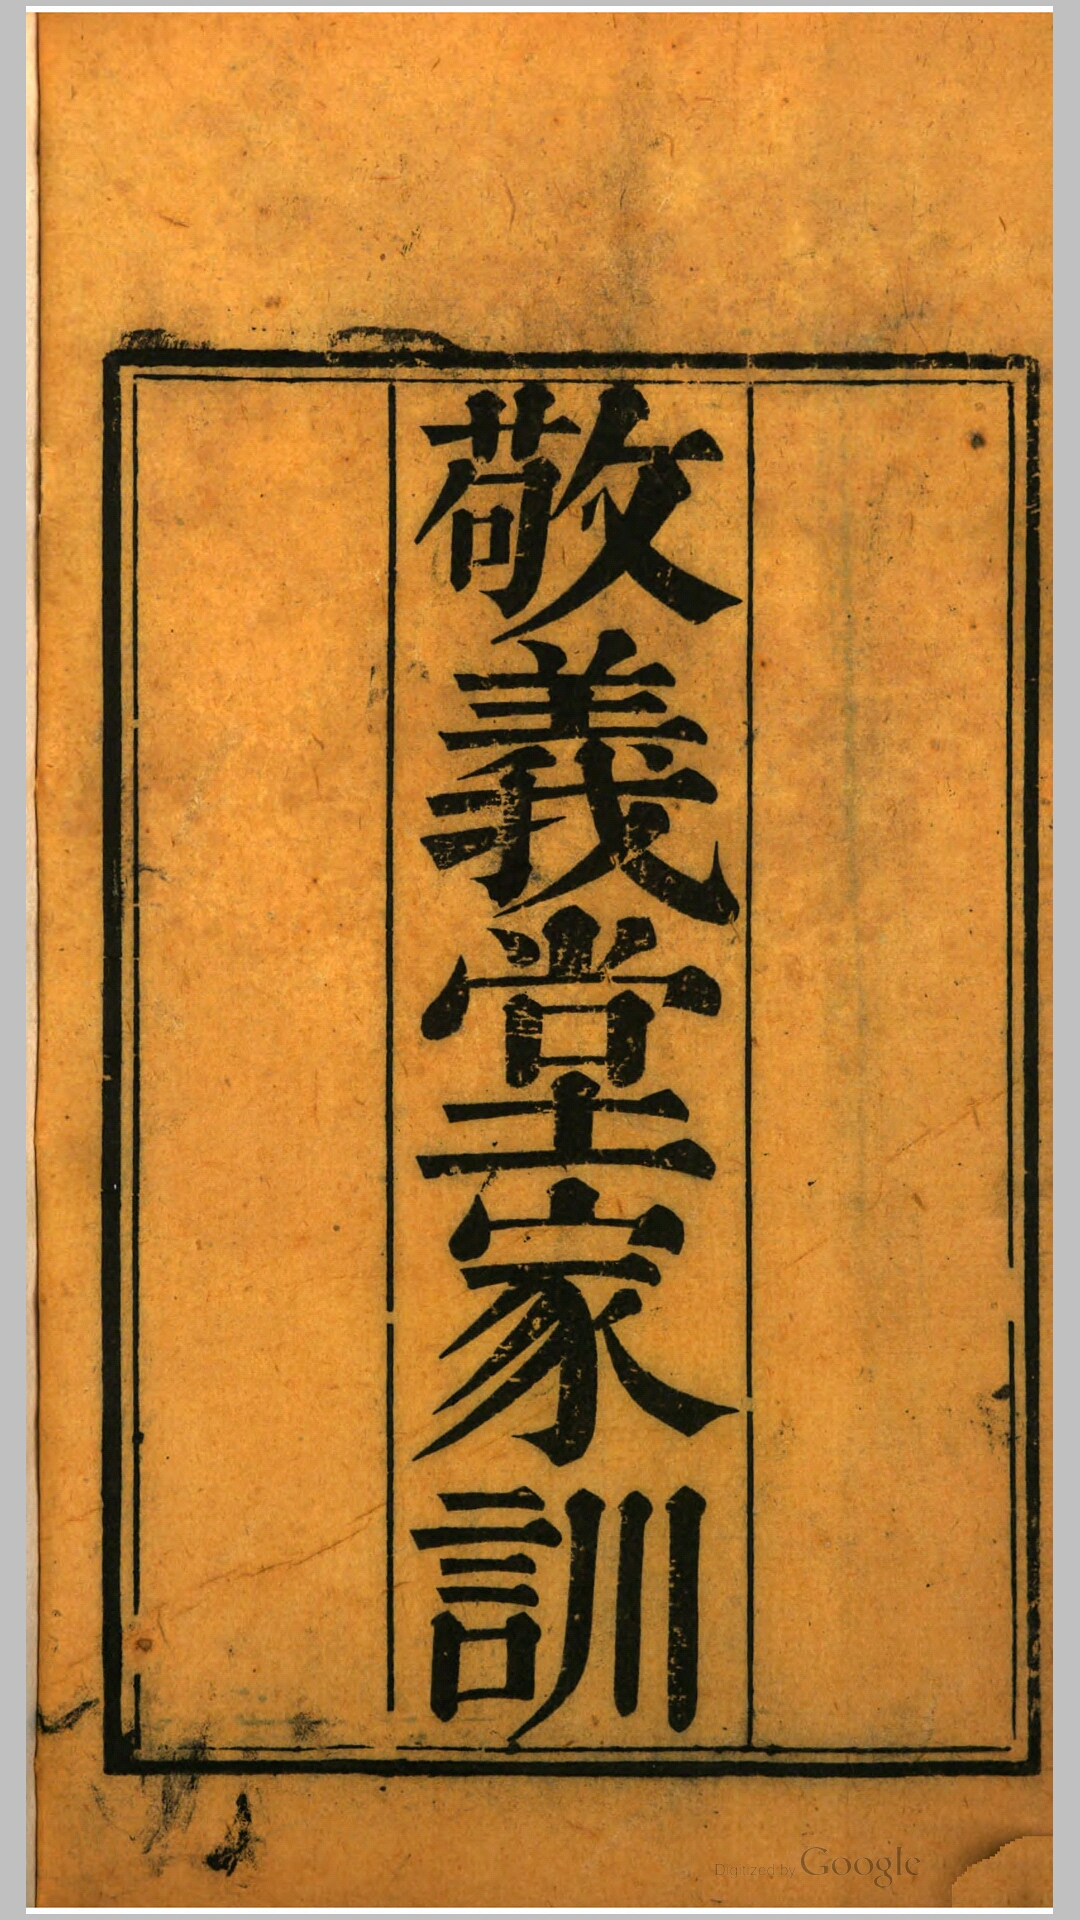 敬義堂家訓
Digitized by Google